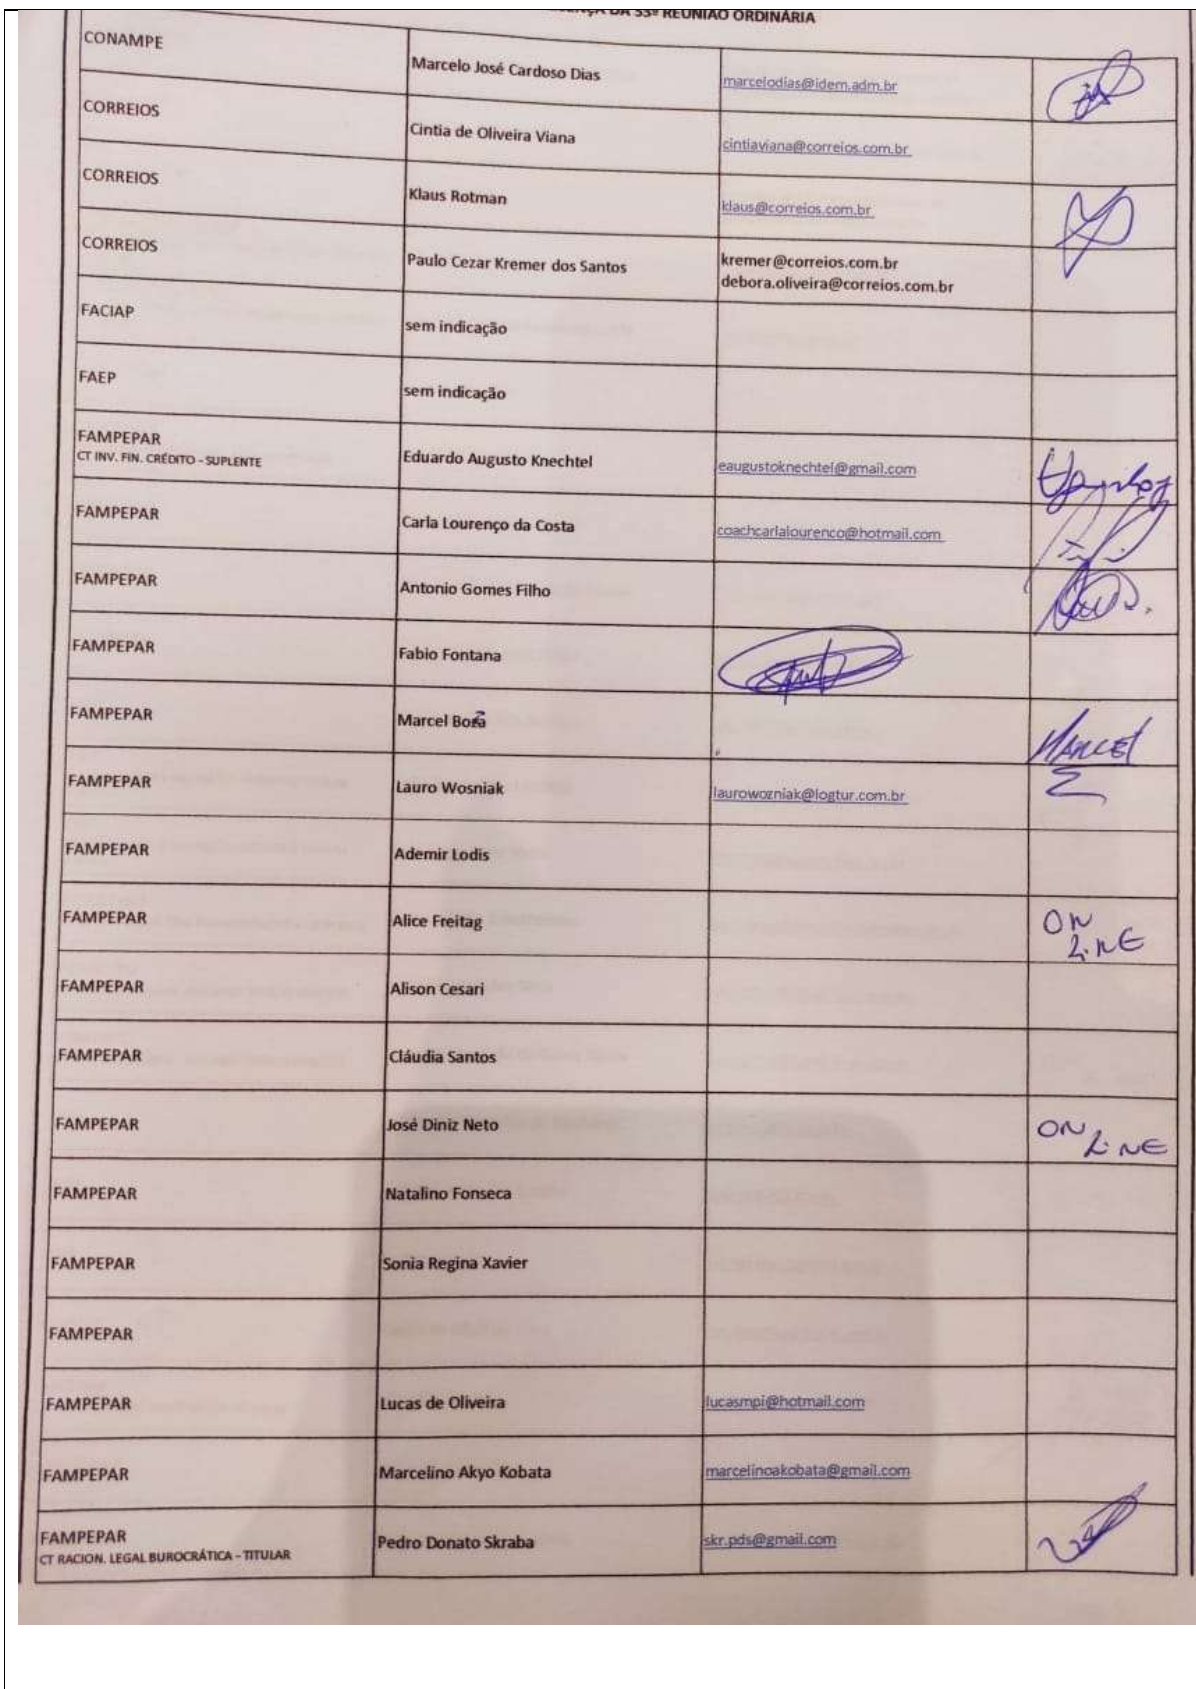 DA 53ª REUNIÃO ORDINÁRIA
CONAMPE Marcelo José Cardoso Dias marcelodias@idem.adm.br
CORREIOS Cintia de Oliveira Viana cintiaviana@correios.com.br
CORREIOS Klaus Rotman klaus@correios.com.br
CORREIOS Paulo Cezar Kremer dos Santos kremer@correios.com.br
debora.oliveira@correios.com.br
FACIAP sem indicação
FAEP sem indicação
FAMPEPAR Eduardo Augusto Knechtel eaugustoknechtel@gmail.com
CT INV. FIN. CRÉDITO - SUPLENTE
FAMPEPAR Carla Lourenço da Costa coachcarlalourenco@hotmail.com
FAMPEPAR Antonio Gomes Filho
FAMPEPAR Fabio Fontana
FAMPEPAR Marcel MARCEL
FAMPEPAR Lauro Wosniak laurowozniak@logtur.com.br
FAMPEPAR Ademir Lodis
FAMPEPAR Alice Freitag ON
LINE
FAMPEPAR Alison Cesari
FAMPEPAR Cláudia Santos
FAMPEPAR José Diniz Neto ON
LINE
FAMPEPAR Natalino Fonseca
FAMPEPAR Sonia Regina Xavier
FAMPEPAR
FAMPEPAR Lucas de Oliveira lucasmpi@hotmail.com
FAMPEPAR Marcelino Akyo Kobata marcelinoakobata@gmail.com
FAMPEPAR Pedro Donato Skraba skr.pds@gmail.com
CT RACION. LEGAL BUROCRÁTICA - TITULAR